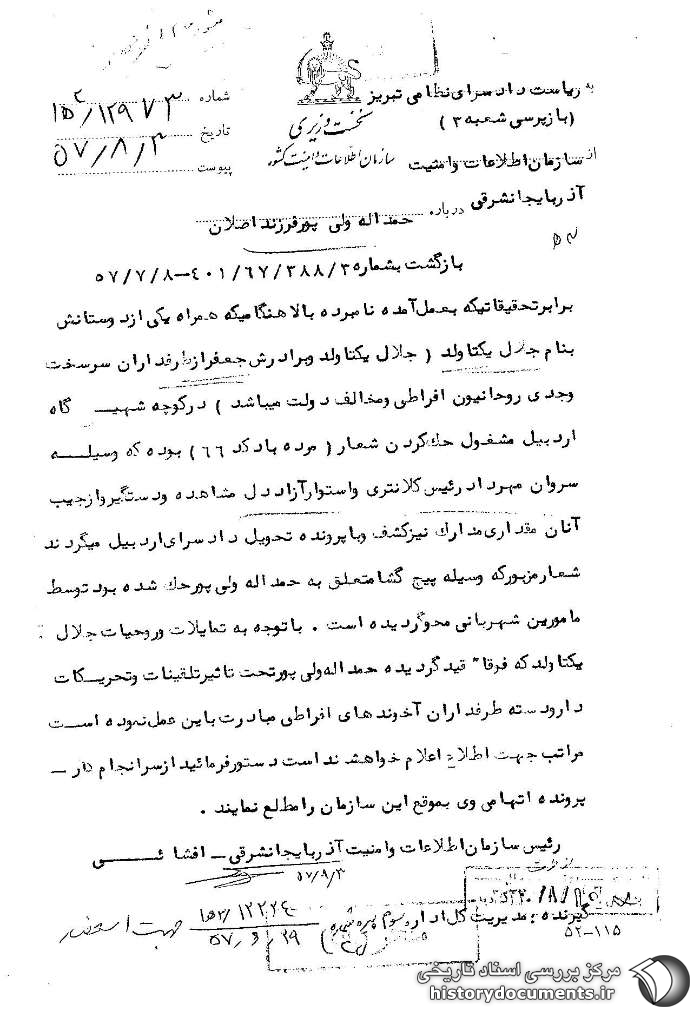 به ریاست دادسرای نظامی تبریز
(بازپرسی شعبه ۳)
نخست وزیری
سازمان اطلاعات و امنیت کشور
شماره ۱۲۹۷۳/ه۲
تاریخ ۵۷/۸/۳
پیوست
از سازمان اطلاعات وامنیت
آذربایجانشرقی
درباره حمداله ولی پورفرزند اصلان
بازگشت بشماره ۴۰۱/۶۷/۳۸۸/۳-۵۷/۷/۸
برابرتحقیقاتیکه بعمل آمده نامبرده بالا هنگامیکه همراه یکی ازدوستانش
بنام جلال یکتاولد ( جلال یکتاولد وبرادرش جعفرازطرفداران سرسخت
وجدی روحانیون افراطی ومخالف دولت میباشد ) درکوچه شهیدگاه
اردبیل مشغول حک کردن شعار ( مرده باد کد ۶۶ ) بوده که وسیله
سروان مهرداد رئیس کلانتری واستوارآزاددل مشاهده ودستگیروازجیب
آنان مقداری مدارک نیزکشف وباپرونده تحویل دادسرای اردبیل میگردند
شعارمزبورکه وسیله پیچ گشامتعلق به حمداله ولی پورحک شده بود توسط
مامورین شهربانی محوگردیده است . باتوجه به تمایلات وروحیات جلال
یکتاولدکه فوقا" قیدگردیده حمداله ولی پورتحت تاثیرتلقینات وتحریکات
دارودسته طرفداران آخوندهای افراطی مبادرت باین عمل نموده است
مراتب جهت اطلاع اعلام خواهشمنداست دستورفرمائیدازسرانجام کار -
پرونده اتهامی وی بموقع این سازمان رامطلع نمایند .
رئیس سازمان اطلاعات وامنیت آذربایجانشرقی - افشائی
۵۷/۹/۳
گیرنده : مدیریت کل اداره سوم
۱۲۲۴۰/ه۳
۵۷/۹/۲۹
۵۲-۱۱۵
مرکز بررسی اسناد تاریخی
historydocuments.ir